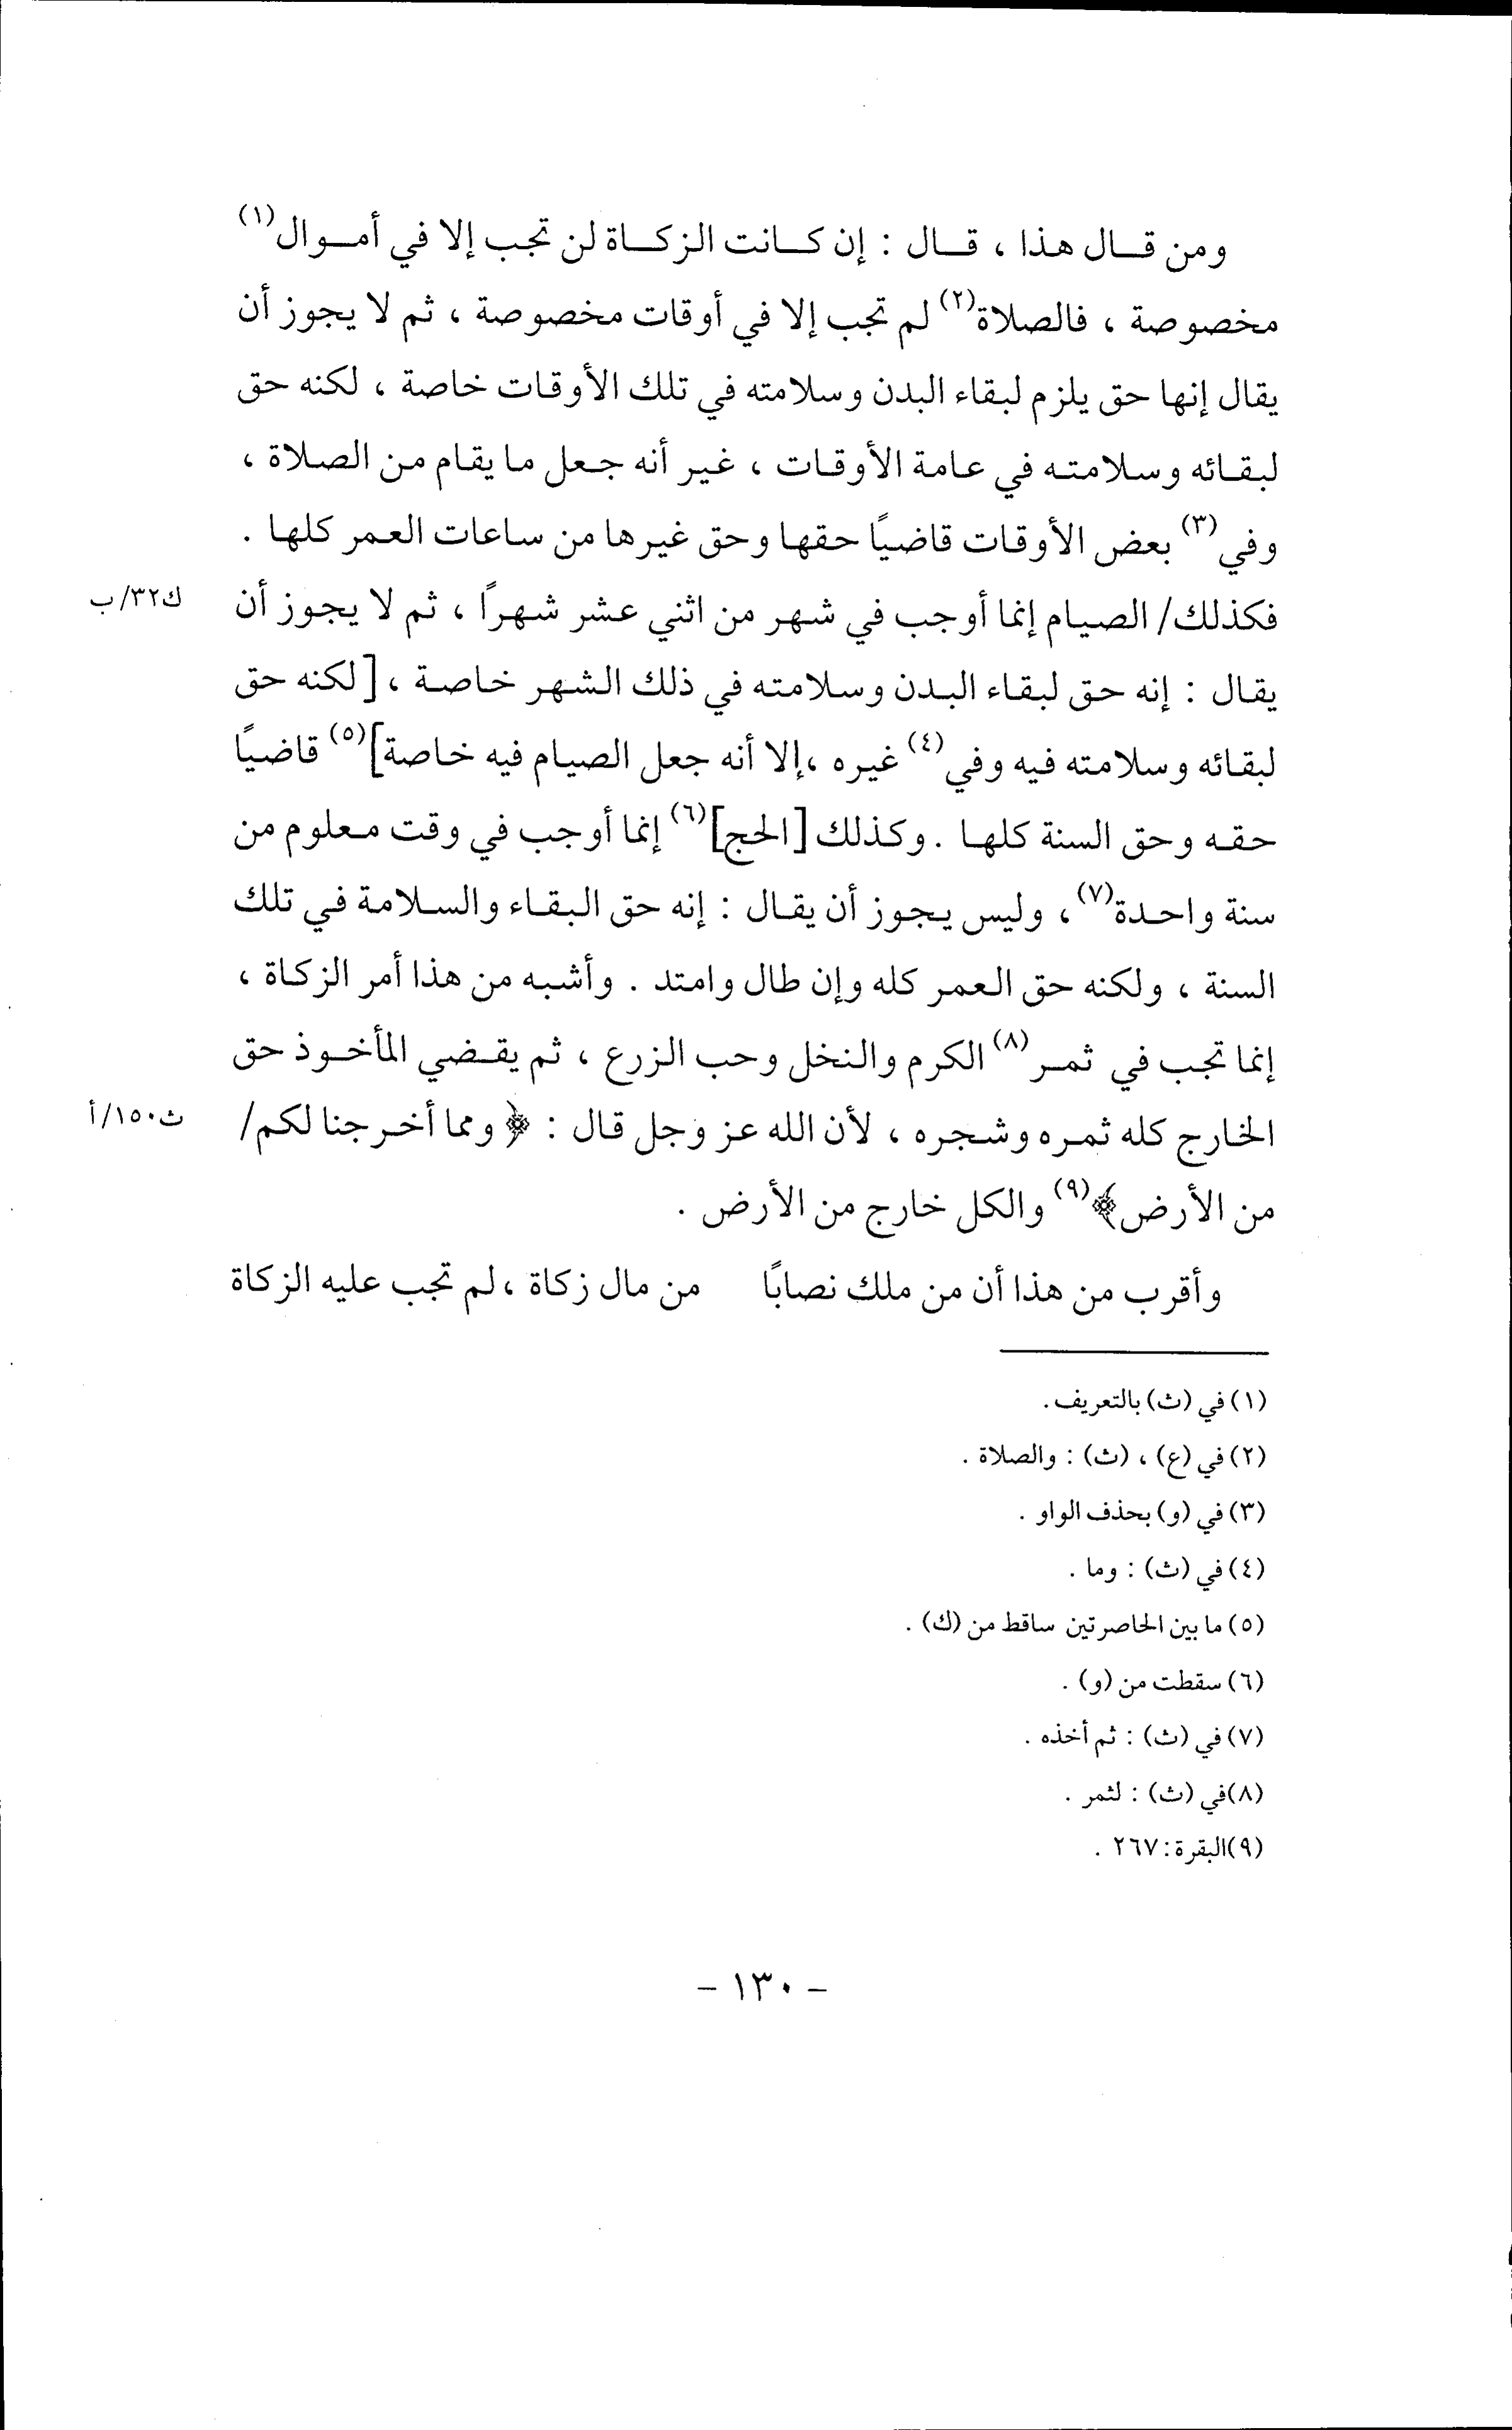 ومن قال هذا ، قال : إن كانت الزكاة لن تجب إلا في أموال(١)
مخصوصة ، فالصلاة(٢) لم تجب إلا في أوقات مخصوصة ، ثم لا يجوز أن
يقال إنها حق يلزم لبقاء البدن وسلامته في تلك الأوقات خاصة ، لكنه حق
لبقائه وسلامته في عامة الأوقات ، غير أنه جعل ما يقام من الصلاة ،
وفي(٣) بعض الأوقات قاضيًا حقها وحق غيرها من ساعات العمر كلها .
فكذلك/ الصيام إنما أوجب في شهر من اثني عشر شهرًا ، ثم لا يجوز أن
ك٣٢/ب
يقال : إنه حق لبقاء البدن وسلامته في ذلك الشهر خاصة ، [لكنه حق
لبقائه وسلامته فيه وفي(٤) غيره ،إلا أنه جعل الصيام فيه خاصة](٥) قاضيًا
حقه وحق السنة كلها . وكذلك [الحج](٦) إنما أوجب في وقت معلوم من
سنة واحدة(٧)، وليس يجوز أن يقال : إنه حق البقاء والسلامة في تلك
السنة ، ولكنه حق العمر كله وإن طال وامتد . وأشبه من هذا أمر الزكاة ،
إنما تجب في ثمر(٨) الكرم والنخل وحب الزرع ، ثم يقضي المأخوذ حق
الخارج كله ثمره وشجره ، لأن الله عز وجل قال : ﴿ومما أخرجنا لكم/
ث١٥٠/أ
من الأرض﴾(٩) والكل خارج من الأرض .
وأقرب من هذا أن من ملك نصابًا من مال زكاة ،لم تجب عليه الزكاة
(١) في (ث) بالتعريف .
(٢) في (ع) ، (ث) : والصلاة .
(٣) في (و) بحذف الواو .
(٤) في (ث) : وما .
(٥) ما بين الحاصرتين ساقط من (ك) .
(٦) سقطت من (و) .
(٧) في (ث) : ثم أخذه .
(٨)في (ث) : لثمر .
(٩)البقرة:٢٦٧ .
- ١٣٠ -